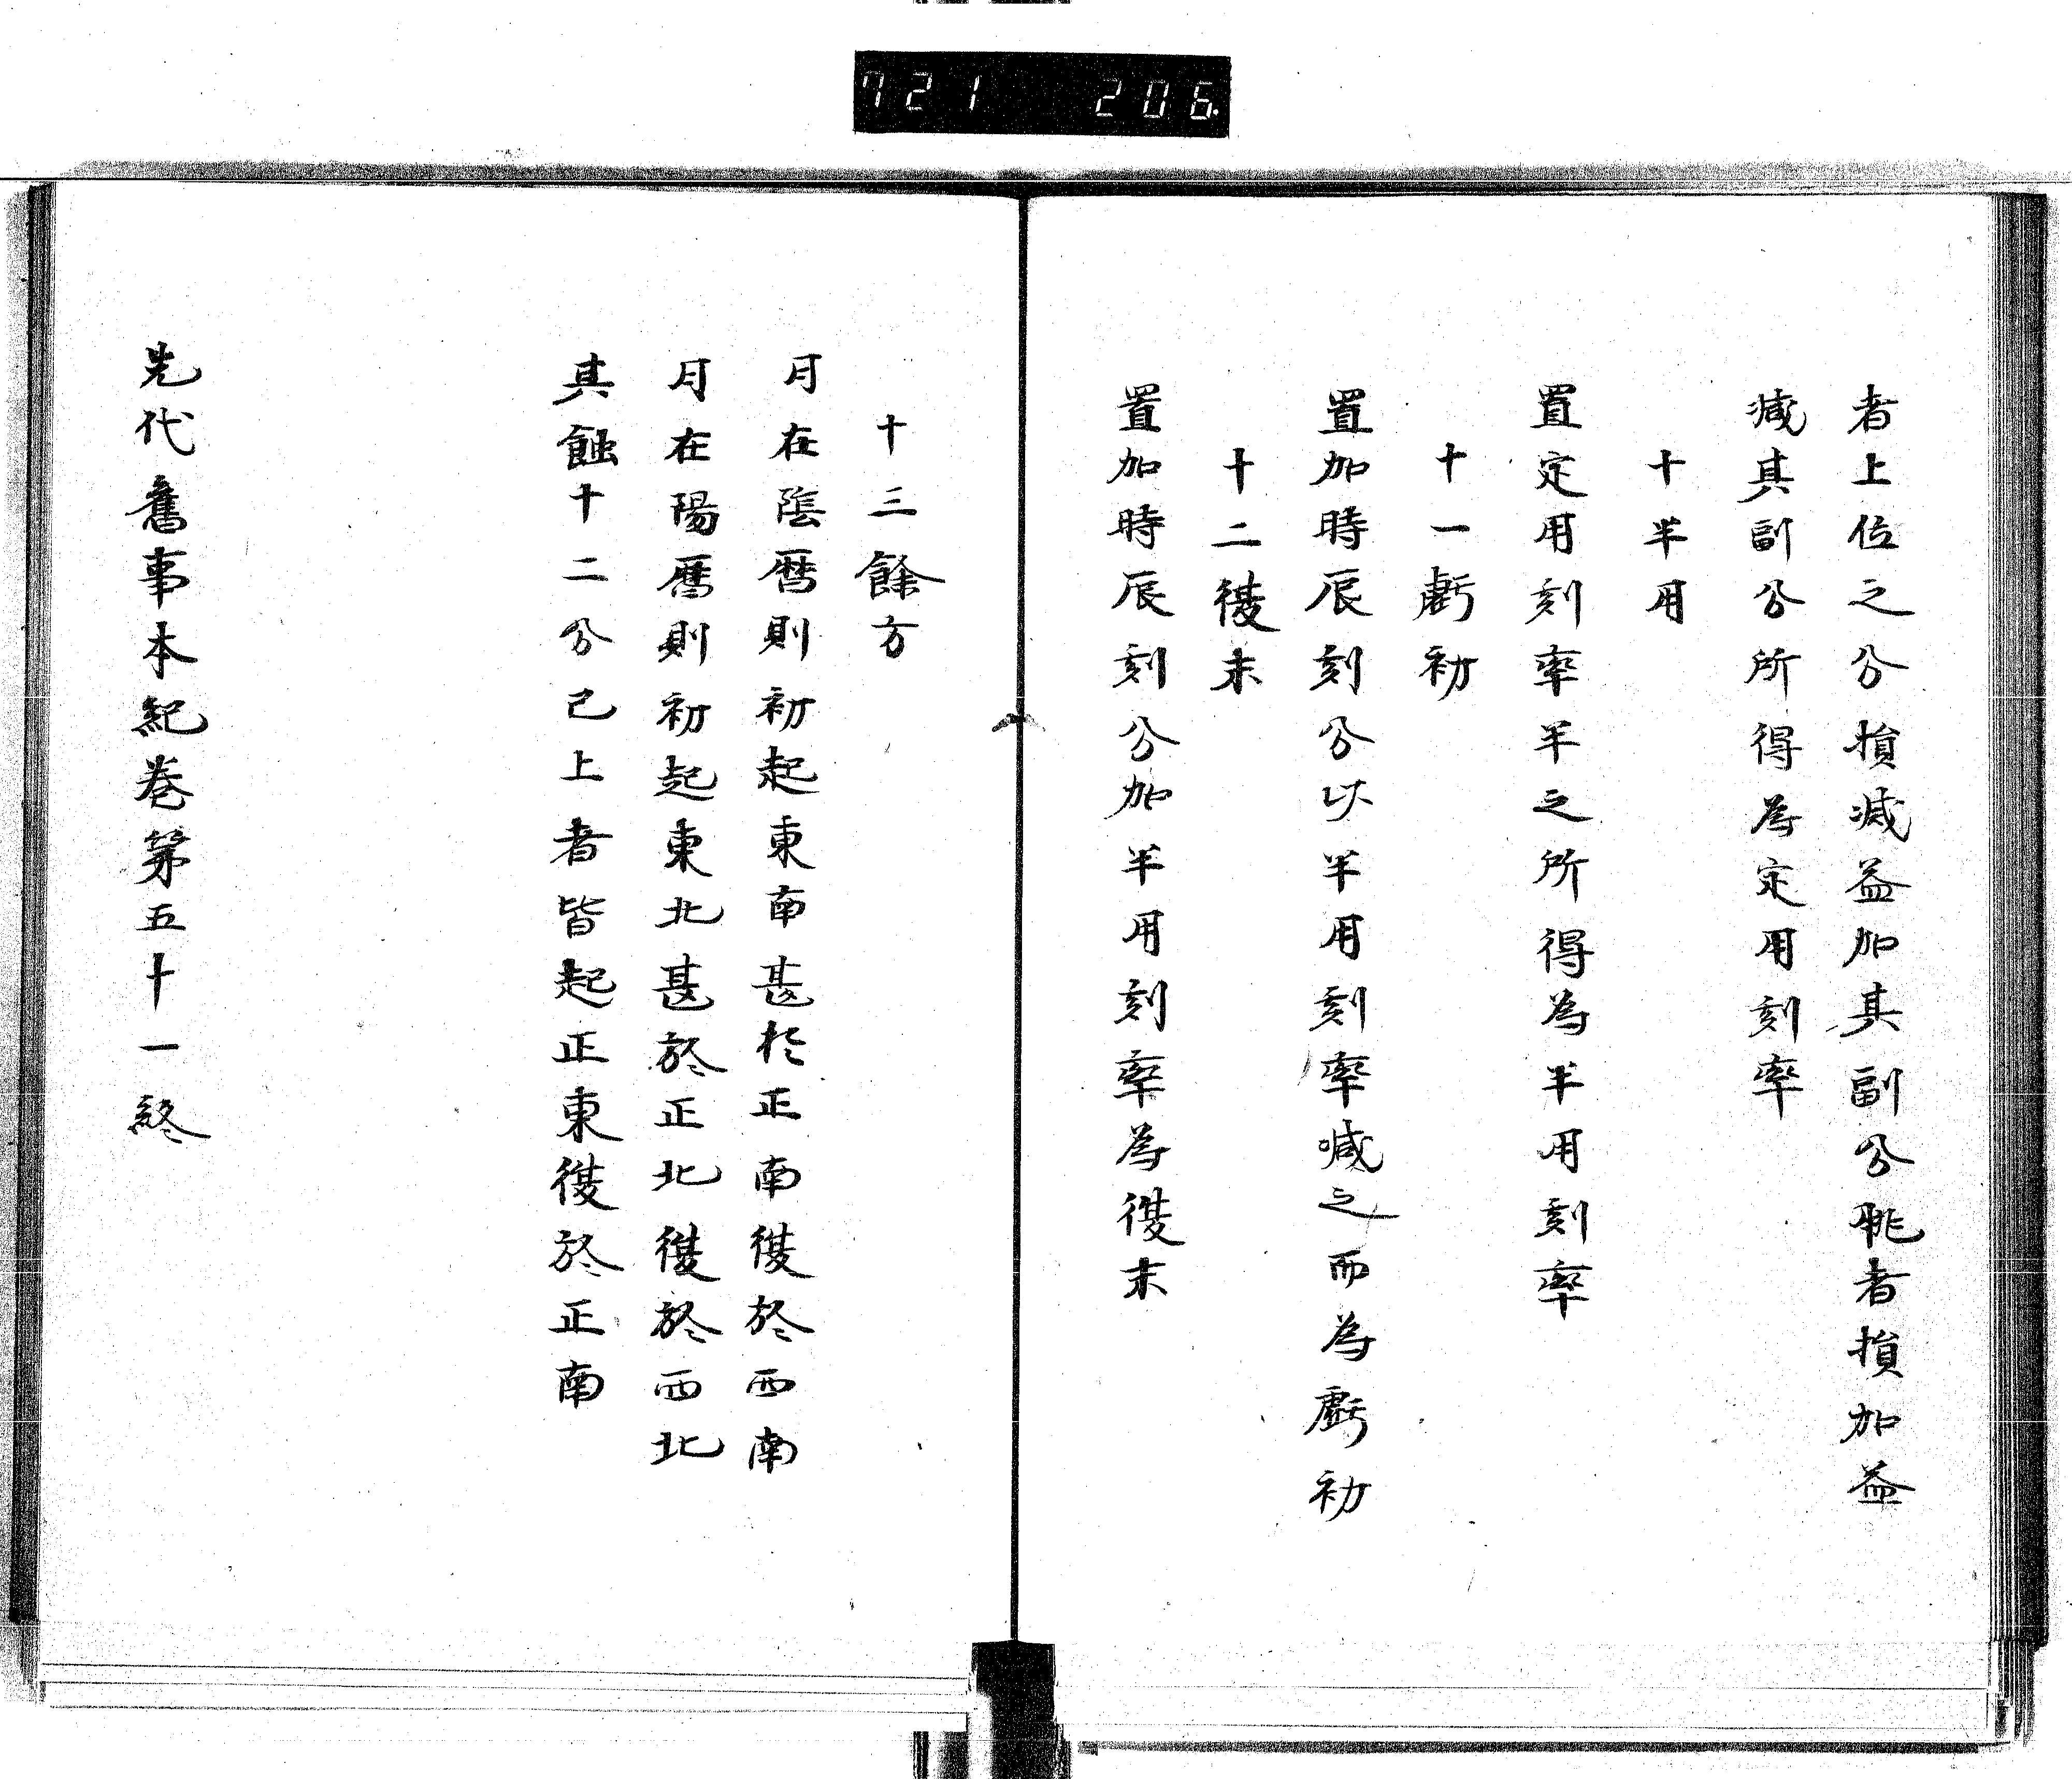 721 206
者上位之分損減益加其副分朓者損加益
減其副分所得為定用刻率
十半用
置定用刻率半之所得為半用刻率
十一虧初
置加時辰刻分以半用刻率喊之而為虧初
十二復末
置加時辰刻分加半用刻率為復末
十三餘方
月在陰暦則初起東南甚於正南復於西南
月在陽暦則初起東北甚於正北復於西北
其蝕十二分已上者皆起正東復於正南
先代舊事本紀巻第五十一終